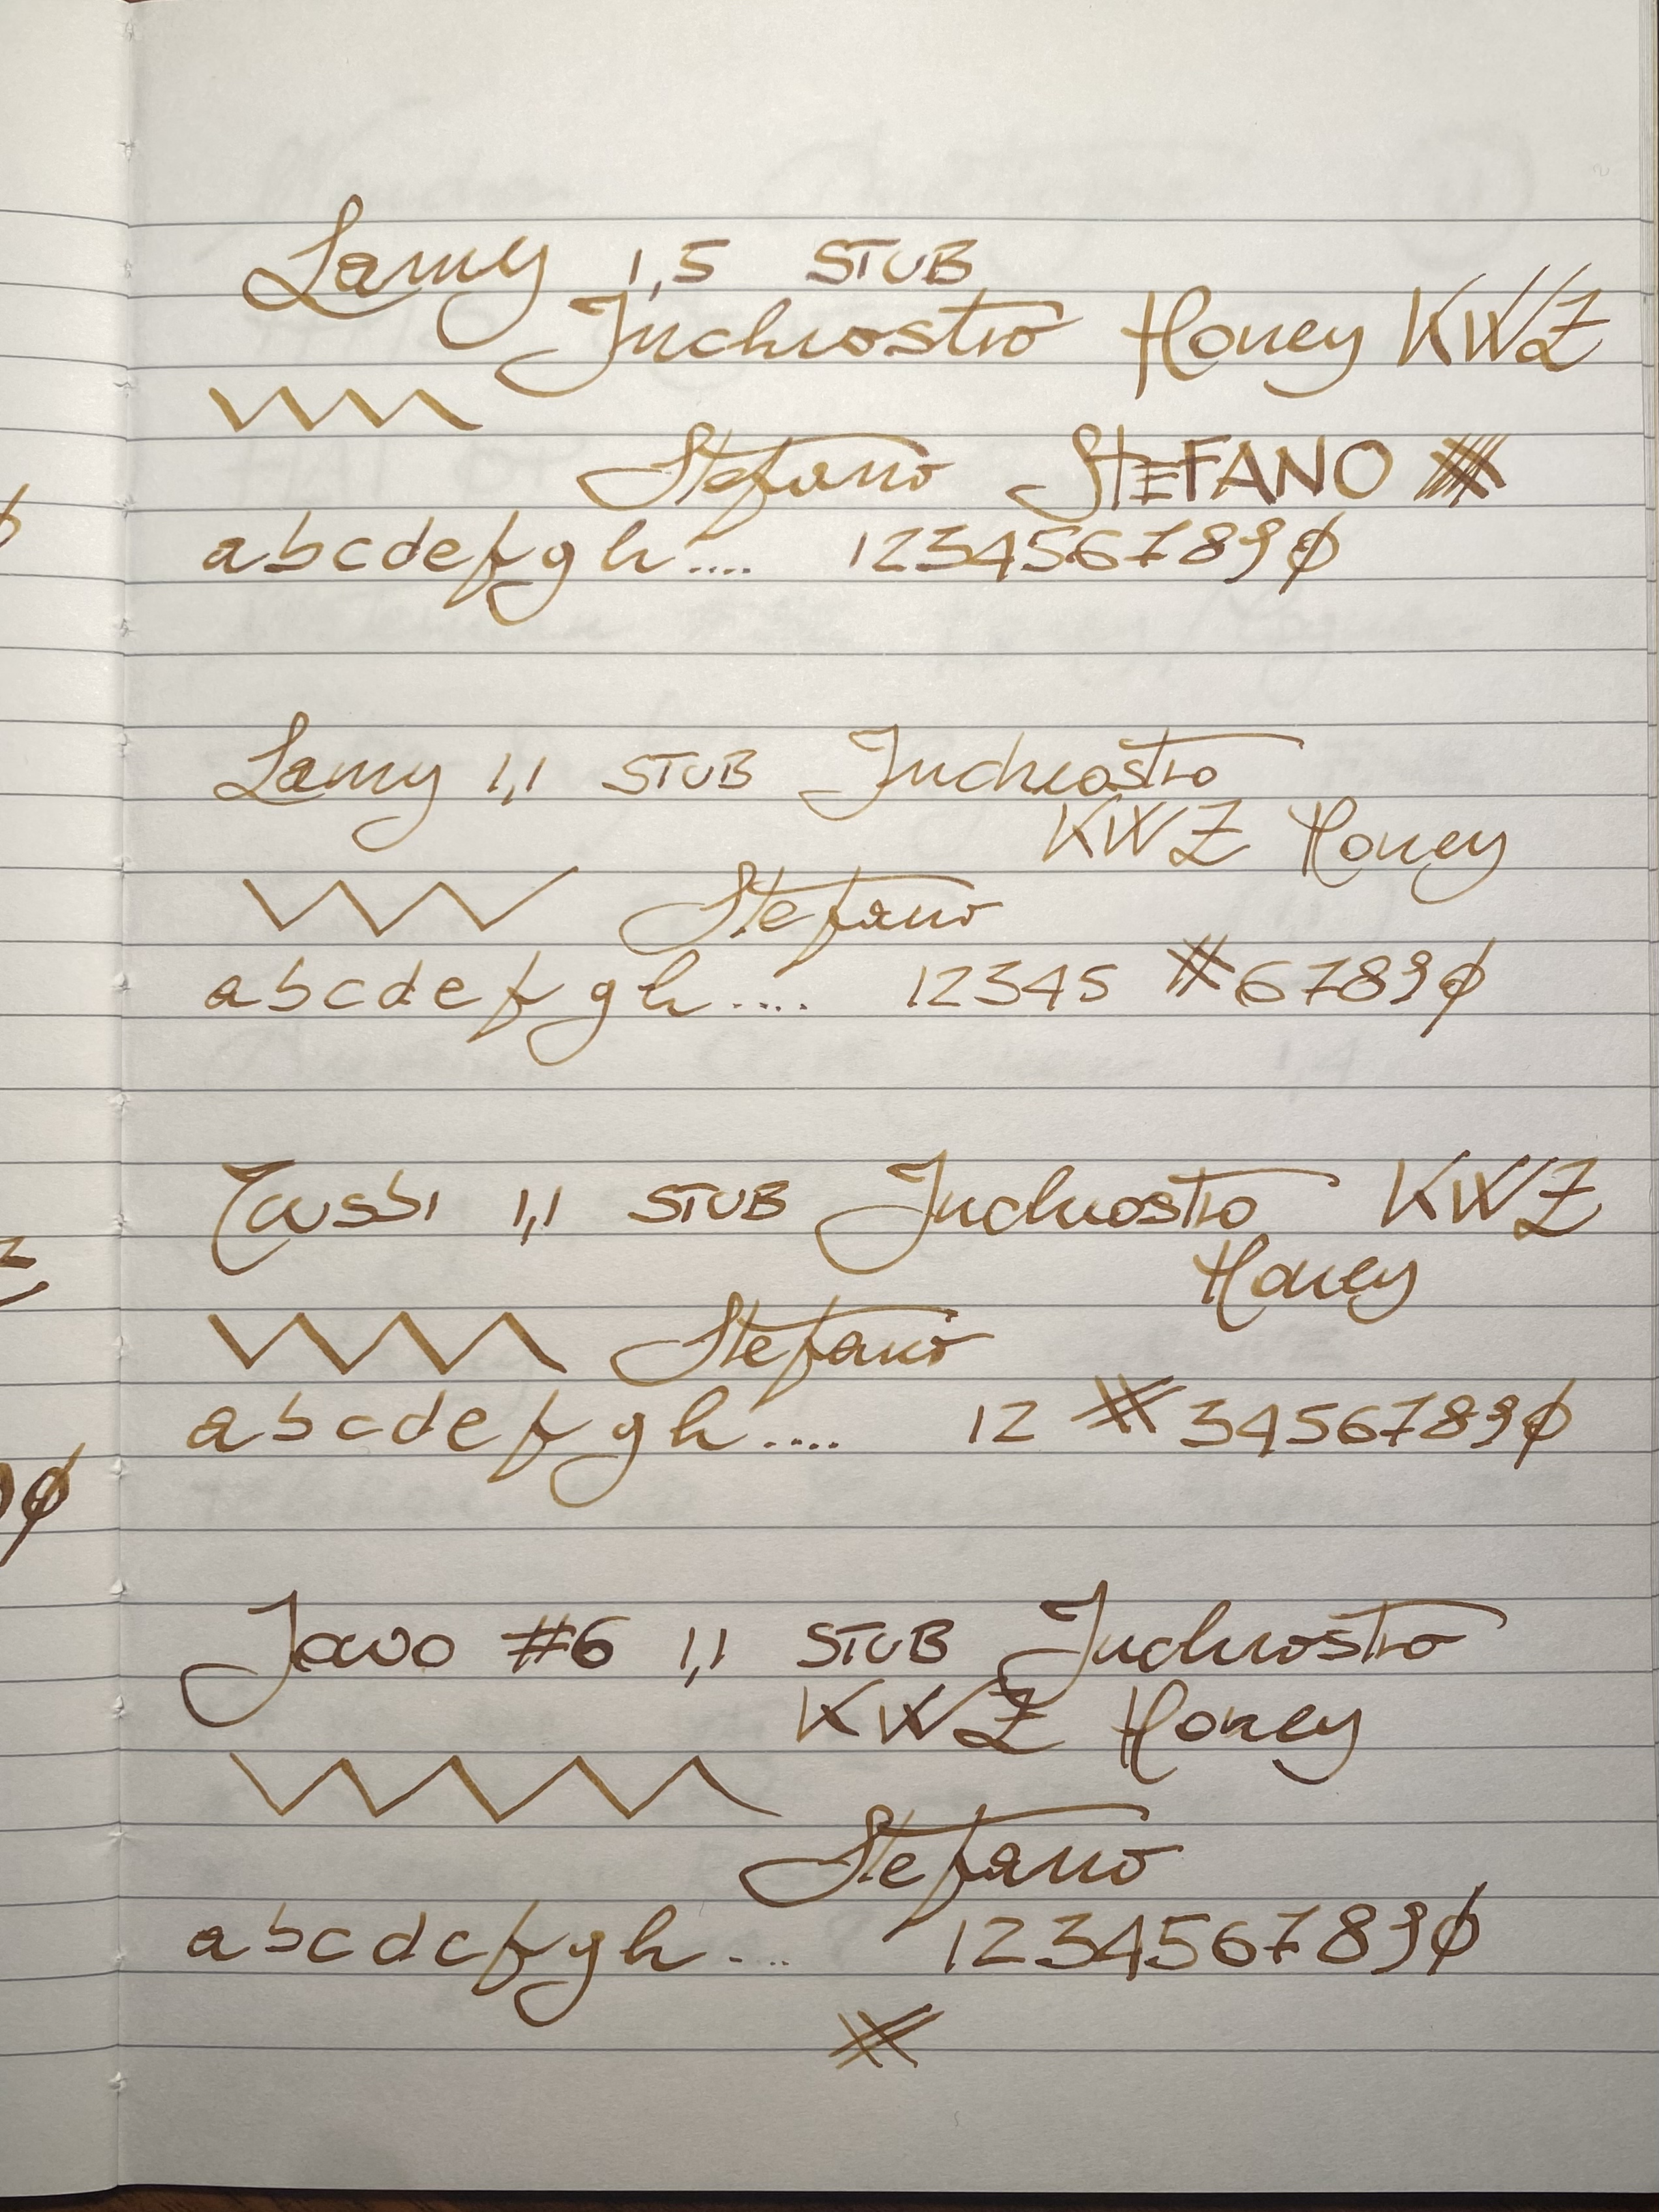 Lamy 1,5 STUB
Inchiostro Honey KWZ
Stefano STEFANO
abcdefgh.... 1234567890
Lamy 1,1 STUB Inchiostro
KWZ Honey
Stefano
abcdefgh.... 12345 67890
1,1 STUB Inchiostro KWZ
Honey
Stefano
abcdefgh.... 12 34567890
Jowo #6 1,1 STUB Inchiostro
KWZ Honey
Stefano
abcdefgh.... 1234567890